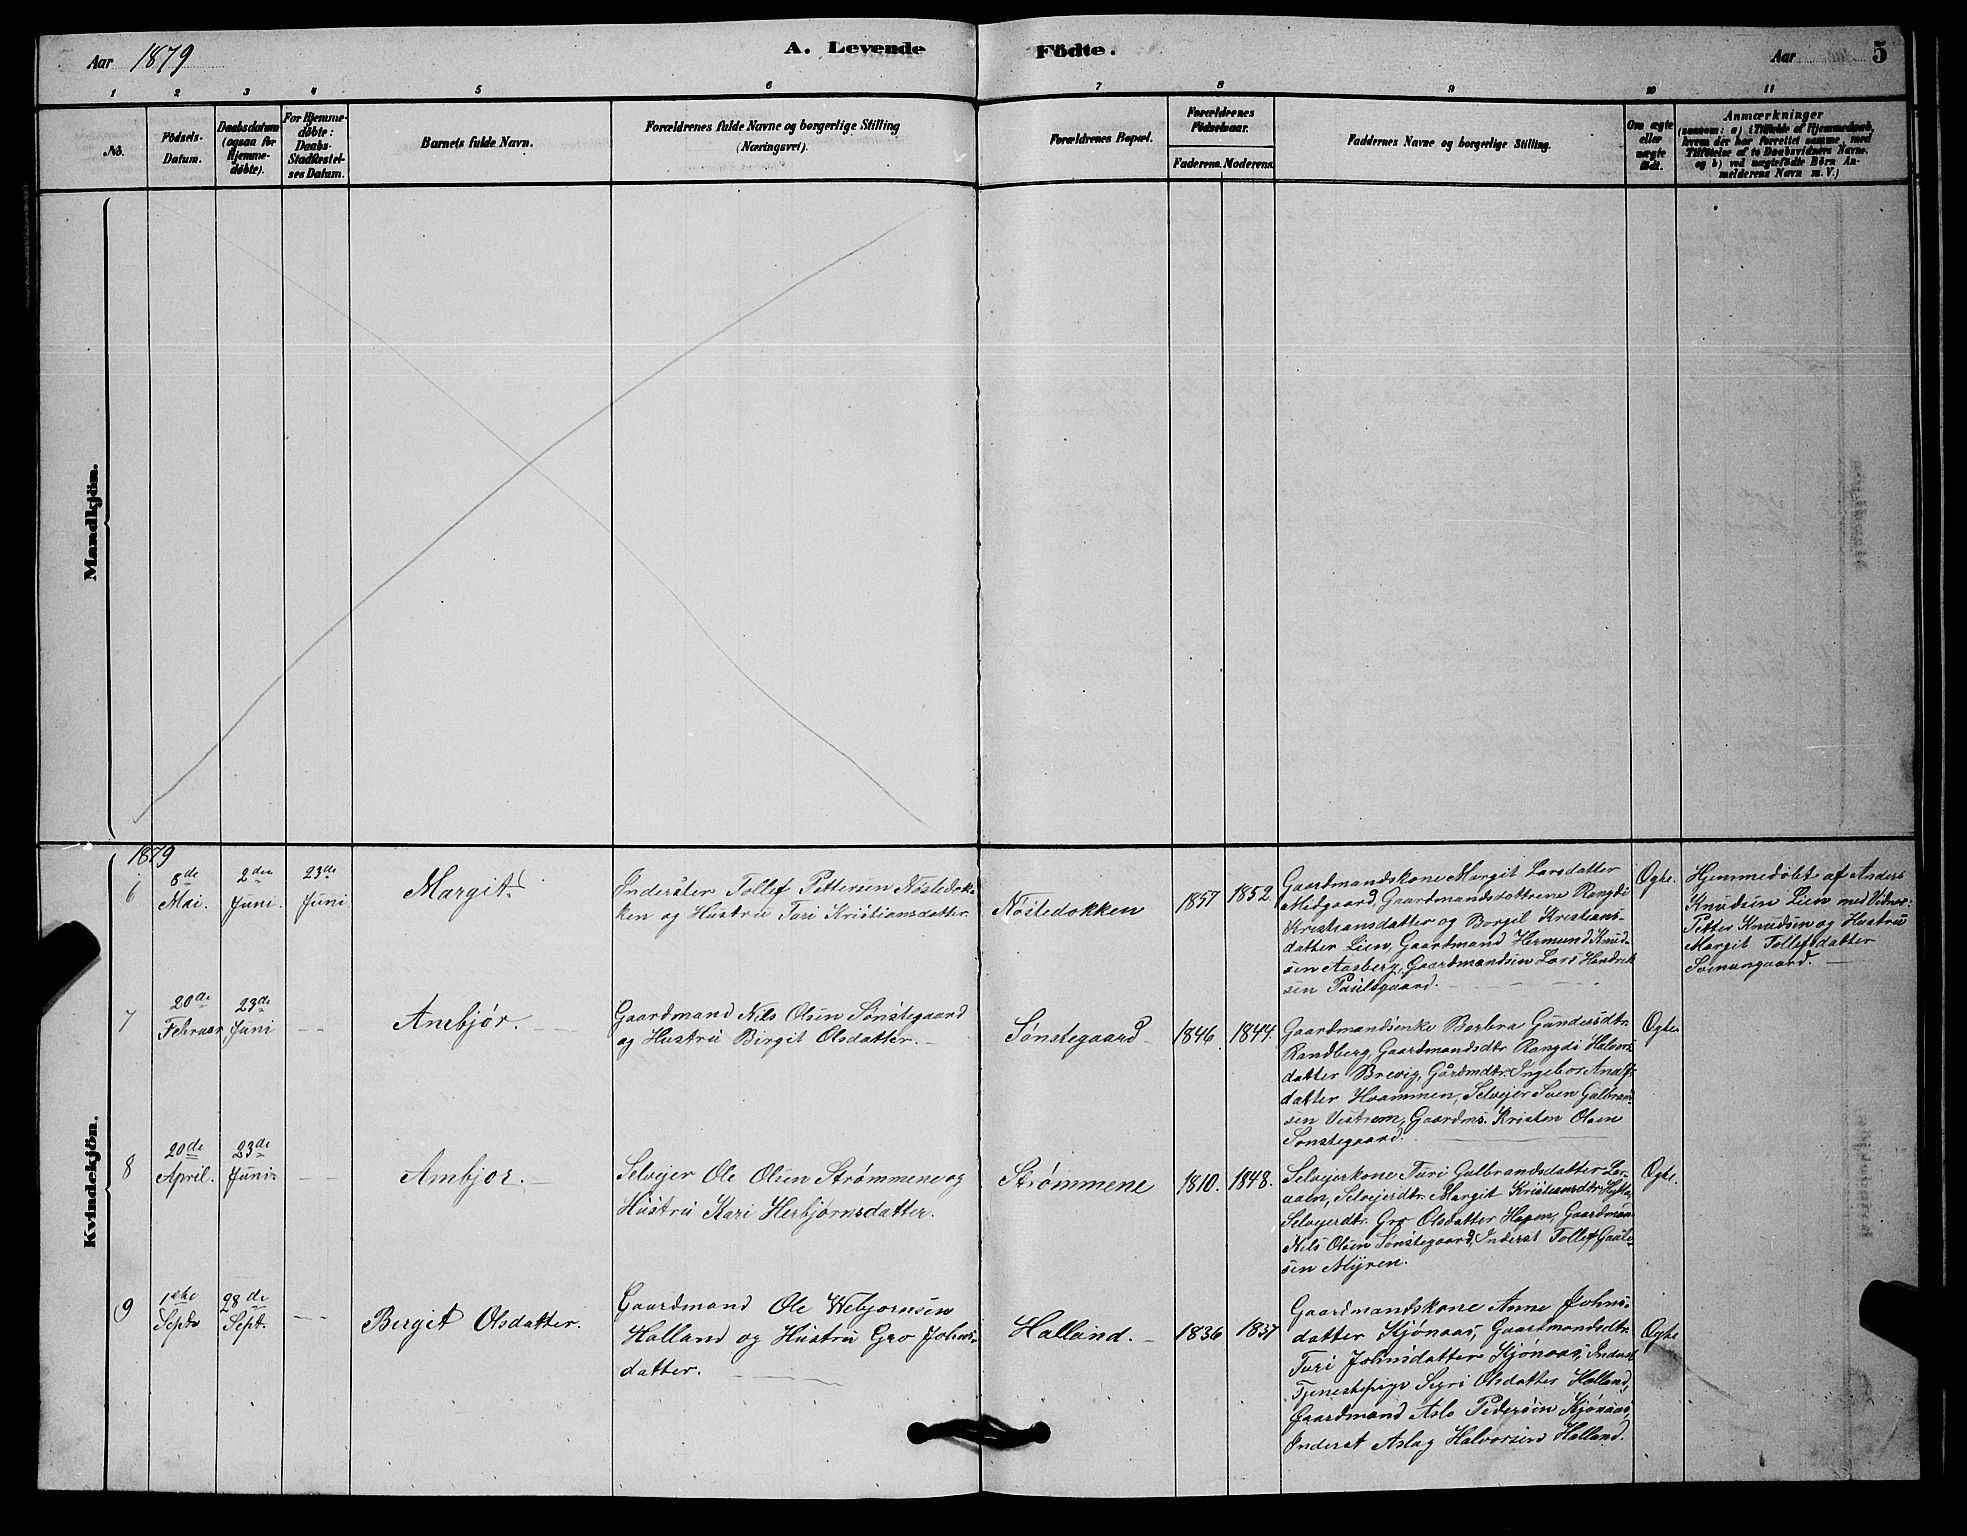 Aar 1879 A. Levende Födte. Aar 5
1 2 3 4 5 6 7 8 9 10 11
No.
Födsels-
Datum.
Daabsdatum
(ogsaa for
Hjemme-
døbte).
For Hjemme-
døbte:
Daabs-
Stadfæstel-
ses Datum.
Barnets fulde Navn.
Forældrenes fulde Navne og borgerlige Stilling
(Næringsvei).
Forældrenes Bopæl.
Forældrenes
Födselsaar.
Faderens. Moderens.
Faddernes Navne og borgerlige Stilling.
Om ægte
eller
uægte
födt.
Anmærkninger
(saasom: a) i Tilfælde af Hjemmedaab,
hvem der har forrettet samme, med
Tilföielse af to Daabsvidners Navne.
og b) ved uægtefödte Börn An-
melderens Navn m. V.)
Mandkjön.
Kvindekjön.
1879
6
8de
Mai.
2den
Juni.
23de
Juni
Margit
Inderster Tollef Pettersen Nøstedok-
ken og Hustru Turi Kristiansdatter
Nøstedokken
1857 1852.
Gaardmandskone Margit Larsdatter
Midgaard, Gaardmandsdøttrene Rangdi
Kristiansdatter og Borgil Kristians-
datter Lien, Gaardmand Hermund Knud-
sen Aasberg, Gaardmandsøn Lars Hendrik
sen Paulsgaard.
Ægte.
Hjemmedøbt af Anders
Knudsen Lien med Vidner:
Petter Knudsen og Hustru
Margit Tollefsdatter
7
20de
Februar
23de
Juni
Anbjør.
Gaardmand Nils Olsen Sønstegaard
og Hustru Birgit Olsdatter.
Sønstegaard
1846. 1844.
Gaardmandsenke Barbra Gundersdtr.
Randberg, Gaardmandsdtr. Rangdi Halvors-
datter Brevig, Gårdmdtr. Ingebor
datter Hvammen, Selvejer Sven Gulbrand-
sen Gaardms. Kristen Olsen
Sønstegaard.
Ægte
8
20de
April.
23de
Juni
Anbjor.
Selvejer Ole Olsen Strømmene og
Hustru Kari Herbjørnsdatter.
Strømmene
1810. 1848.
Selvejerkone Turi Gulbrandsdatter
Selvejerdtr. Margit Kristiansdtr.
Selvejerdtr. Gro Olsdatter Hagen, Gaardman
Nils Olsen Sønstegaard, Inderst Tollef
sen Myren.
Ægte.
9
1ste
Septr
28de
Sept.
Birgit Olsdatter.
Gaardmand Ole Webjornsen
Halland og Hustru Gro Johns-
datter.
Halland.
1836 1837
Gaardmandskone Anne Johns-
datter Kjønaas, Gaardmandsdtr.
Turi Johnsdatter Kjønaas, Inderst
Tjenestepige Sigri Olsdatter Halland,
Gaardmand Aslo Pedersen Kjønaas,
Inderst Aslag Halvorsen Halland.
Ægte